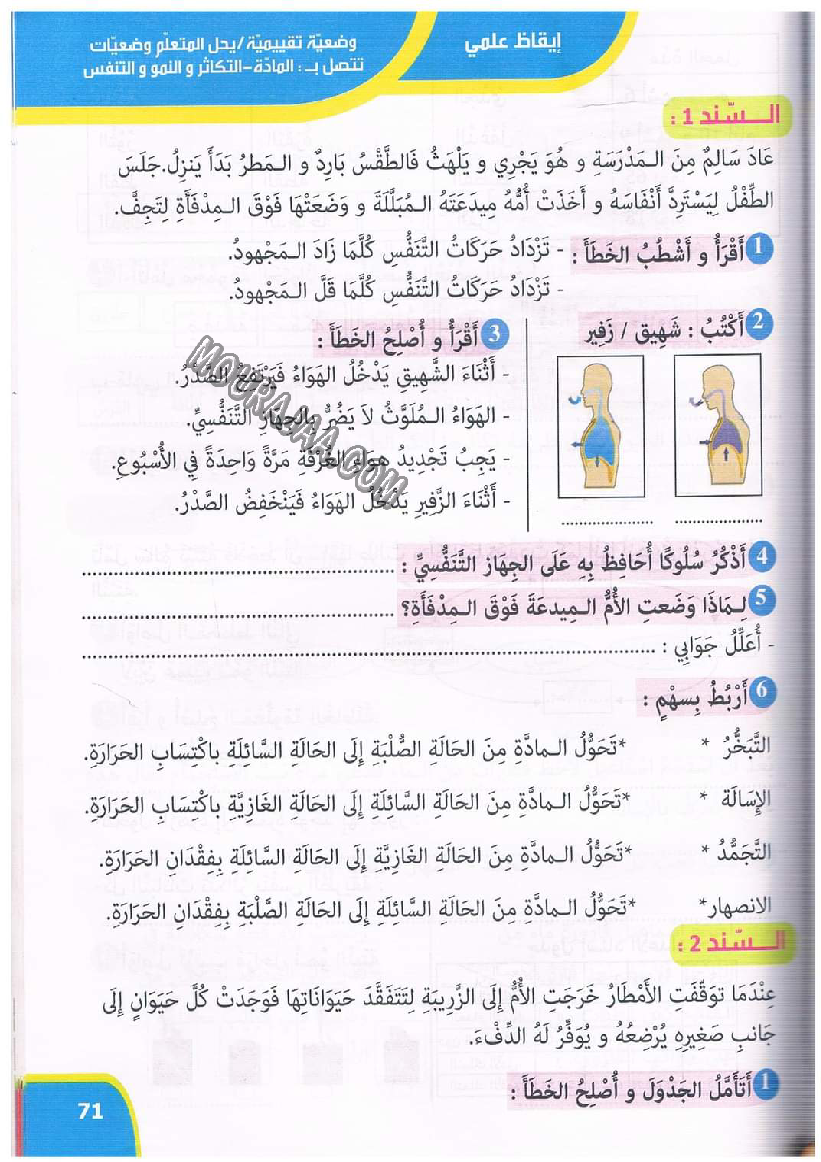 إيقاظ علمي
وضعيّة تقييميّة /يحل المتعلّم وضعيّات
تتصل بـ : المادّة-التكاثر و النمو و التنفس
الـــسّند 1 :
عَادَ سَالِمٌ مِنَ الـمَدْرَسَةِ و هُوَ يَجْرِي و يَلْهَثُ فَالطَّقْسُ بَارِدٌ و الـمَطرُ بَدَأَ يَنزِلُ.جَلَسَ
الطِّفْلُ لِيَسْتَرِدَّ أَنْفَاسَهُ و أَخَذَتْ أُمُّهُ مِيدَعَتَهُ الـمُبَلَّلَةَ و وَضَعَتْهَا فَوْقَ الـمِدْفَأَةِ لِتَجِفَّ.
1 أَقْرَأُ و أَشْطُبُ الخَطَأَ : - تَزْدَادُ حَرَكَاتُ التَّنَفُّسِ كُلَّمَا زَادَ الـمَجْهودُ.
- تَزْدَادُ حَرَكَاتُ التَّنَفُّسِ كُلَّمَا قَلَّ الـمَجْهودُ.
2 أَكْتُبُ : شَهِيق / زَفِير
3 أَقْرَأُ و أُصْلِحُ الخَطَأَ :
- أَثْنَاءَ الشَّهِيقِ يَدْخُلُ الهَوَاءُ فَيَرْتَفِعُ الصَّدْرُ.
- الهَوَاءُ الـمُلَوَّثُ لاَ يَضُرُّ بِالجِهَازِ التَّنَفُّسِيِّ.
- يَجِبُ تَجْدِيدُ هوَاءِ الغُرْفَةِ مَرَّةً وَاحِدَةً فِي الأُسْبُوعِ.
- أَثْنَاءَ الزَّفِيرِ يَدْخُلُ الهَوَاءُ فَيَنْخَفِضُ الصَّدْرُ.
MOURAJAA.COM
4 أَذْكُرُ سُلُوكًا أُحَافِظُ بِهِ عَلَى الجِهَازِ التَّنَفُّسِيِّ : ........................................
5 لِـمَاذَا وَضَعتِ الأُمُّ الـمِيدعَةَ فَوْقَ الـمِدْفَأَةِ؟ ........................................
- أُعَلِّلُ جَوَابِي : ........................................
6 أَرْبُطُ بِسهْمٍ :
التَّبَخُّرُ * *تَحَوُّلُ الـمادَّةِ مِنَ الحَالَةِ الصُّلْبَةِ إِلَى الحَالَةِ السَّائِلَةِ باكْتِسَابِ الحَرَارَةِ.
الإِسَالَة * *تَحَوُّلُ الـمادَّةِ مِنَ الحَالَةِ السَّائِلَةِ إِلَى الحَالَةِ الغَازِيَّةِ باكْتِسَابِ الحَرَارَةِ.
التَّجَمُّدُ * *تَحَوُّلُ الـمادَّةِ مِنَ الحَالَةِ الغَازِيَّةِ إِلَى الحَالَةِ السَّائِلَةِ بِفِقْدَانِ الحَرَارَةِ.
الانصهار* *تَحَوُّلُ الـمادَّةِ مِنَ الحَالَةِ السَّائِلَةِ إِلَى الحَالَةِ الصَّلْبَةِ بِفِقْدَانِ الحَرَارَةِ.
الـــسّند 2 :
عِنْدَمَا توَقّفَتِ الأَمْطَارُ خَرَجَتِ الأُمُّ إِلَى الزَّرِيبَةِ لِتَتَفَقَّدَ حَيَوَانَاتِهَا فَوَجَدَتْ كُلَّ حَيَوَانٍ إِلَى
جَانبِ صَغيرِهِ يُرْضِعُهُ و يُوَفِّرُ لَهُ الدِّفْءَ.
1 أَتَأَمَّلُ الجَدْوَلَ و أُصْلِحُ الخَطَأَ :
71